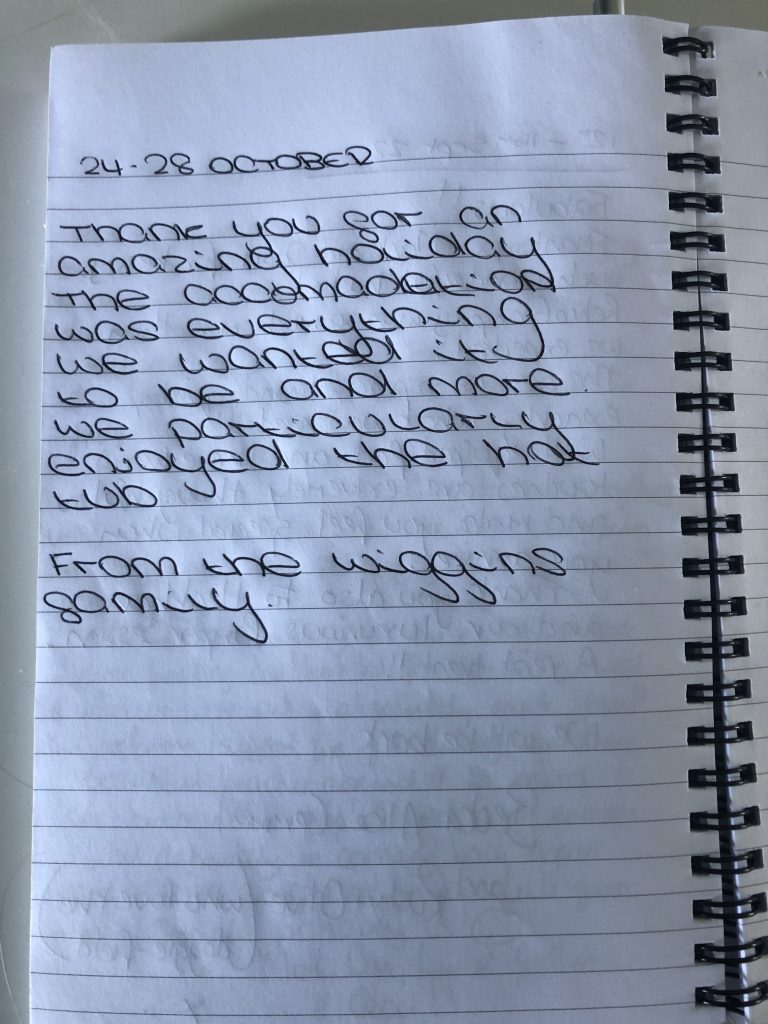 24-28 OCTOBER
Thank you for an
amazing holiday
The accomodation
was everything
we wanted it
to be and more.
we particularly
enjoyed the hot
tub
From the wiggins
family.